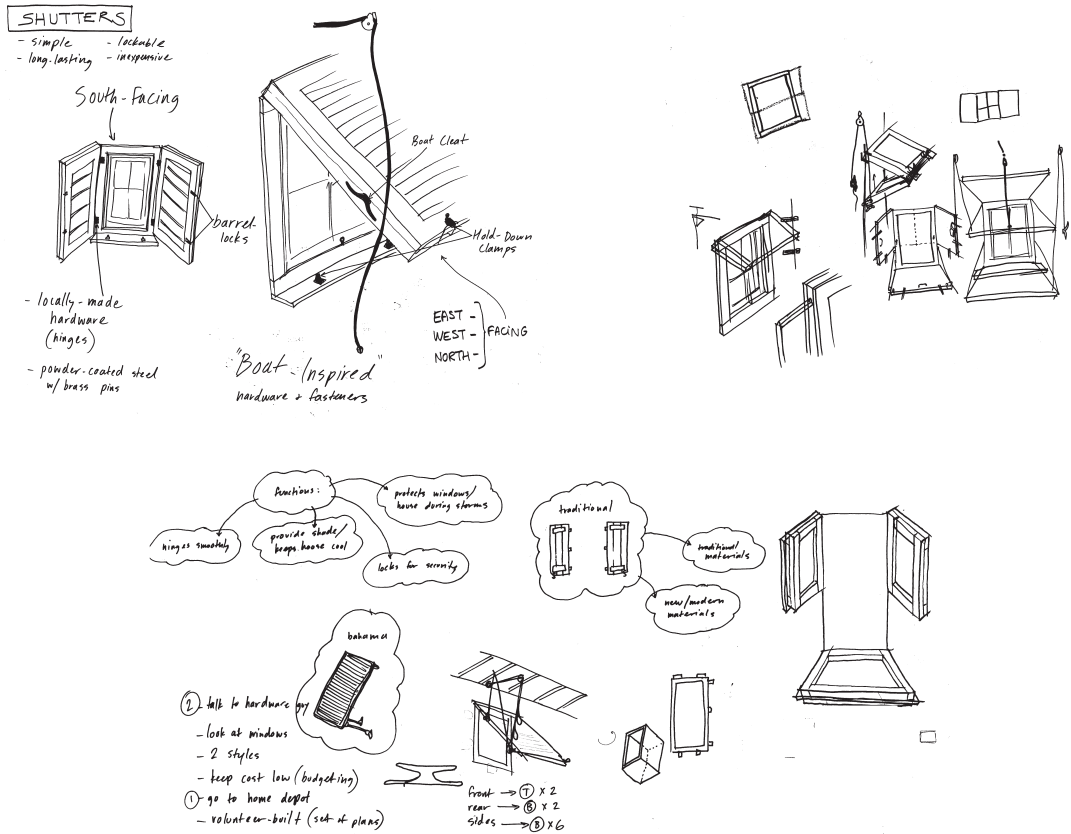 SHUTTERS
- simple
- lockable
- long-lasting
- inexpensive
South-Facing
barrel-
locks
- locally-made
hardware
(hinges)
- powder-coated steel
w/ brass pins
Boat Cleat
Hold-Down
Clamps
EAST -
WEST -
NORTH -
FACING
"Boat-Inspired"
hardware & fasteners
functions:
protects windows/
house during storms
hinges smoothly
provide shade/
keeps house cool
locks for security
traditional
traditional
materials
new/modern
materials
bahama
② - talk to hardware guy
- look at windows
- 2 styles
- keep cost low (budgeting)
① - go to home depot
- volunteer-built (set of plans)
front → Ⓣ x 2
rear → Ⓑ x 2
sides → Ⓑ x 6